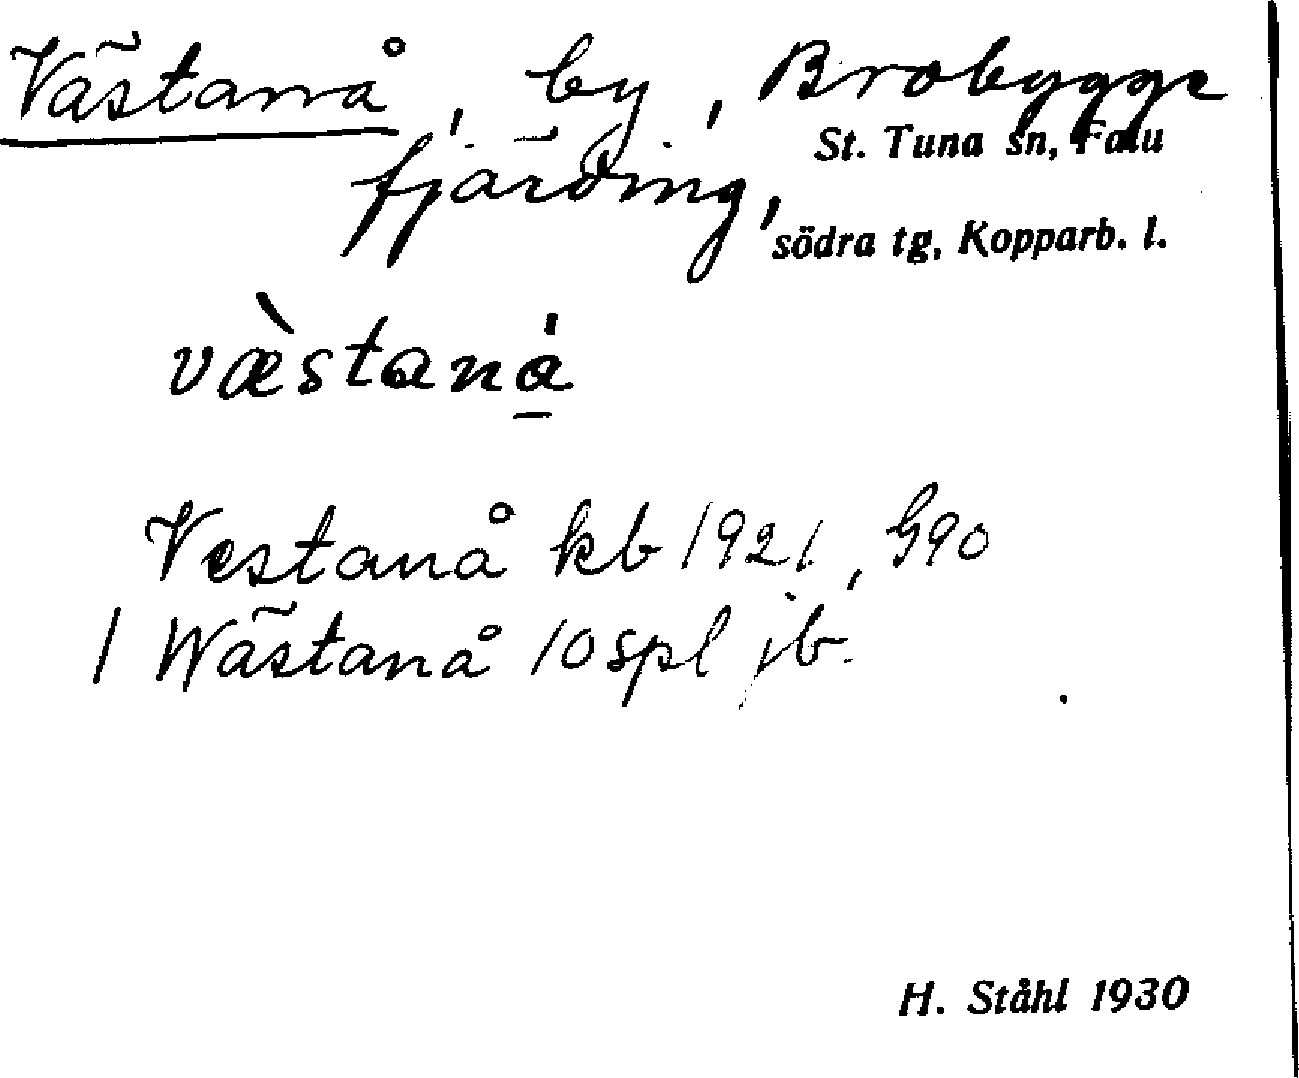 Västanå, by, Brobygge
St. Tuna sn, Falu
fjärding,
södra tg, Kopparb. l.
væ̀stanȧ̱
Vestanå kb 1921, G90
1 Wästanå 10 spl jb.
H. Ståhl 1930